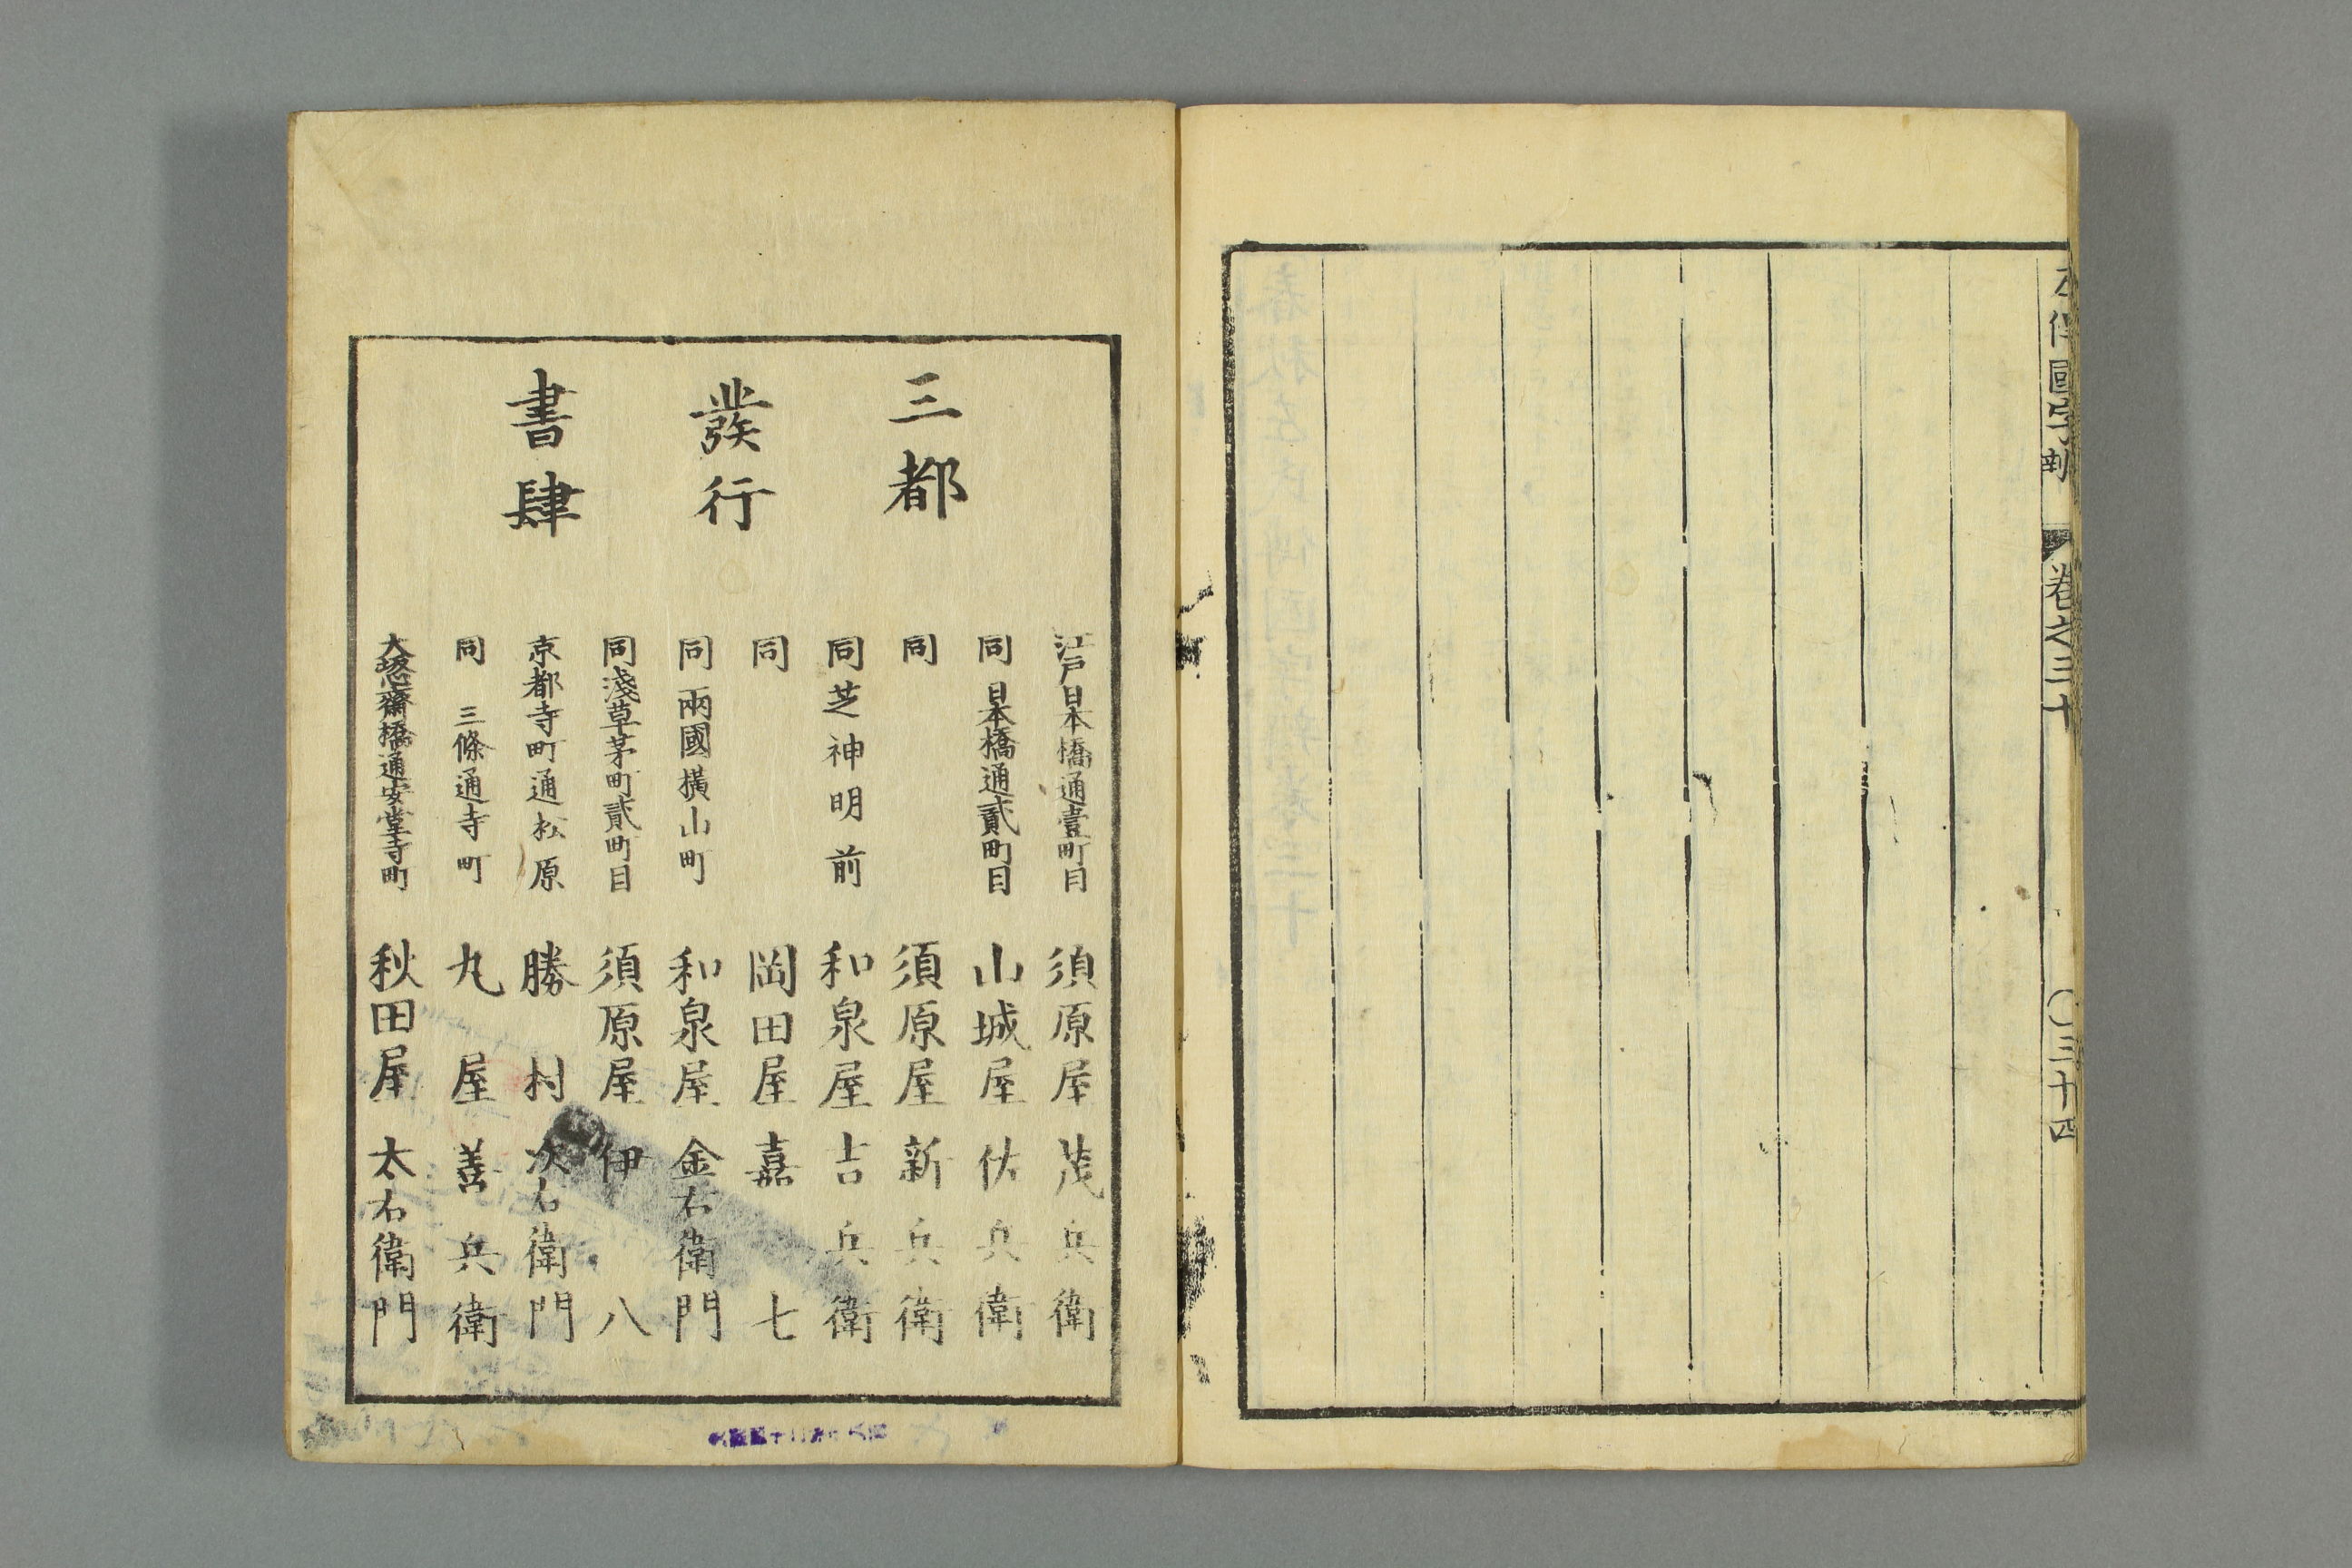 左傳國字辨
卷之三十
〇三十四
三都
發行
書肆
江戸日本橋通壹町目 須原屋茂兵衛
同日本橋通貳町目 山城屋佐兵衛
同 須原屋新兵衛
同芝神明前 和泉屋吉兵衛
同 岡田屋嘉七
同兩國橫山町 和泉屋金右衛門
同淺草茅町貳町目 須原屋伊八
京都寺町通松原 勝村次右衛門
同三條通寺町 丸屋善兵衛
大坂心齋橋通安堂寺町 秋田屋太右衛門